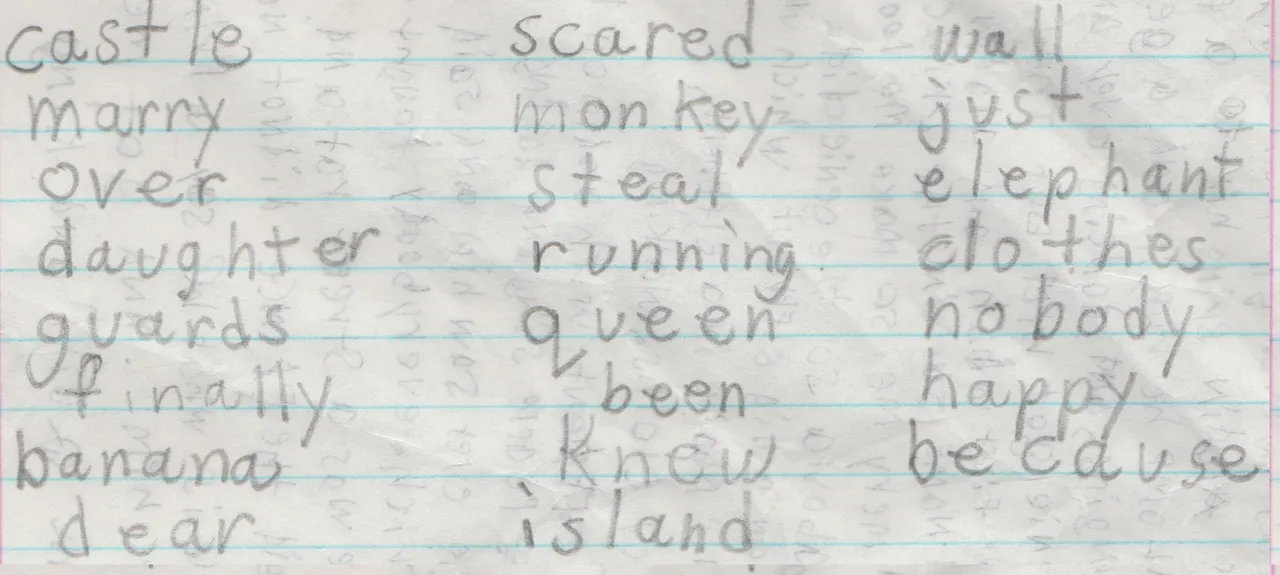 castle scared wall
marry monkey just
over steal elephant
daughter running clothes
guards queen nobody
finally been happy
banana knew because
dear island